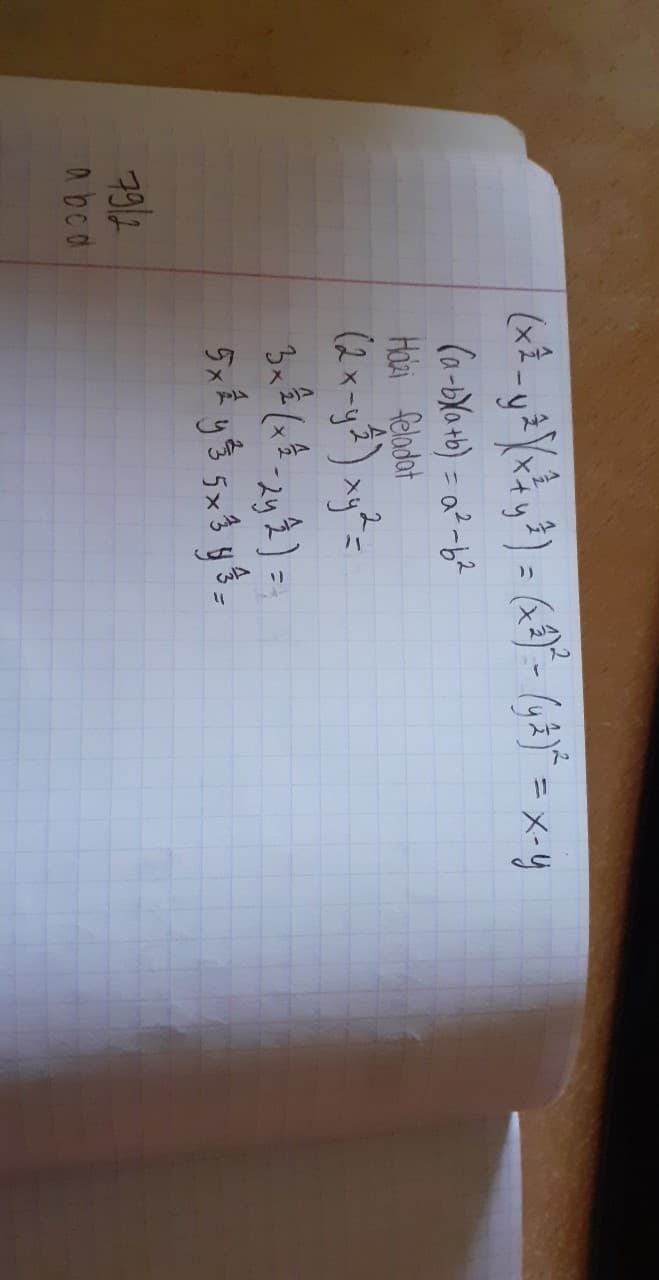 (x^{1/2} - y^{1/2})(x^{1/2} + y^{1/2}) = (x^{1/2})^2 - (y^{1/2})^2 = x-y
(a-b)(a+b) = a^2 - b^2
Házi feladat
(2x - y^{1/2}) xy^2 =
3x^{1/2}(x^{1/2} - 2y^{1/2}) =
5x^{1/2} y^{2/3} 5x^{1/3} y^{1/3} =
79/2
a b c d